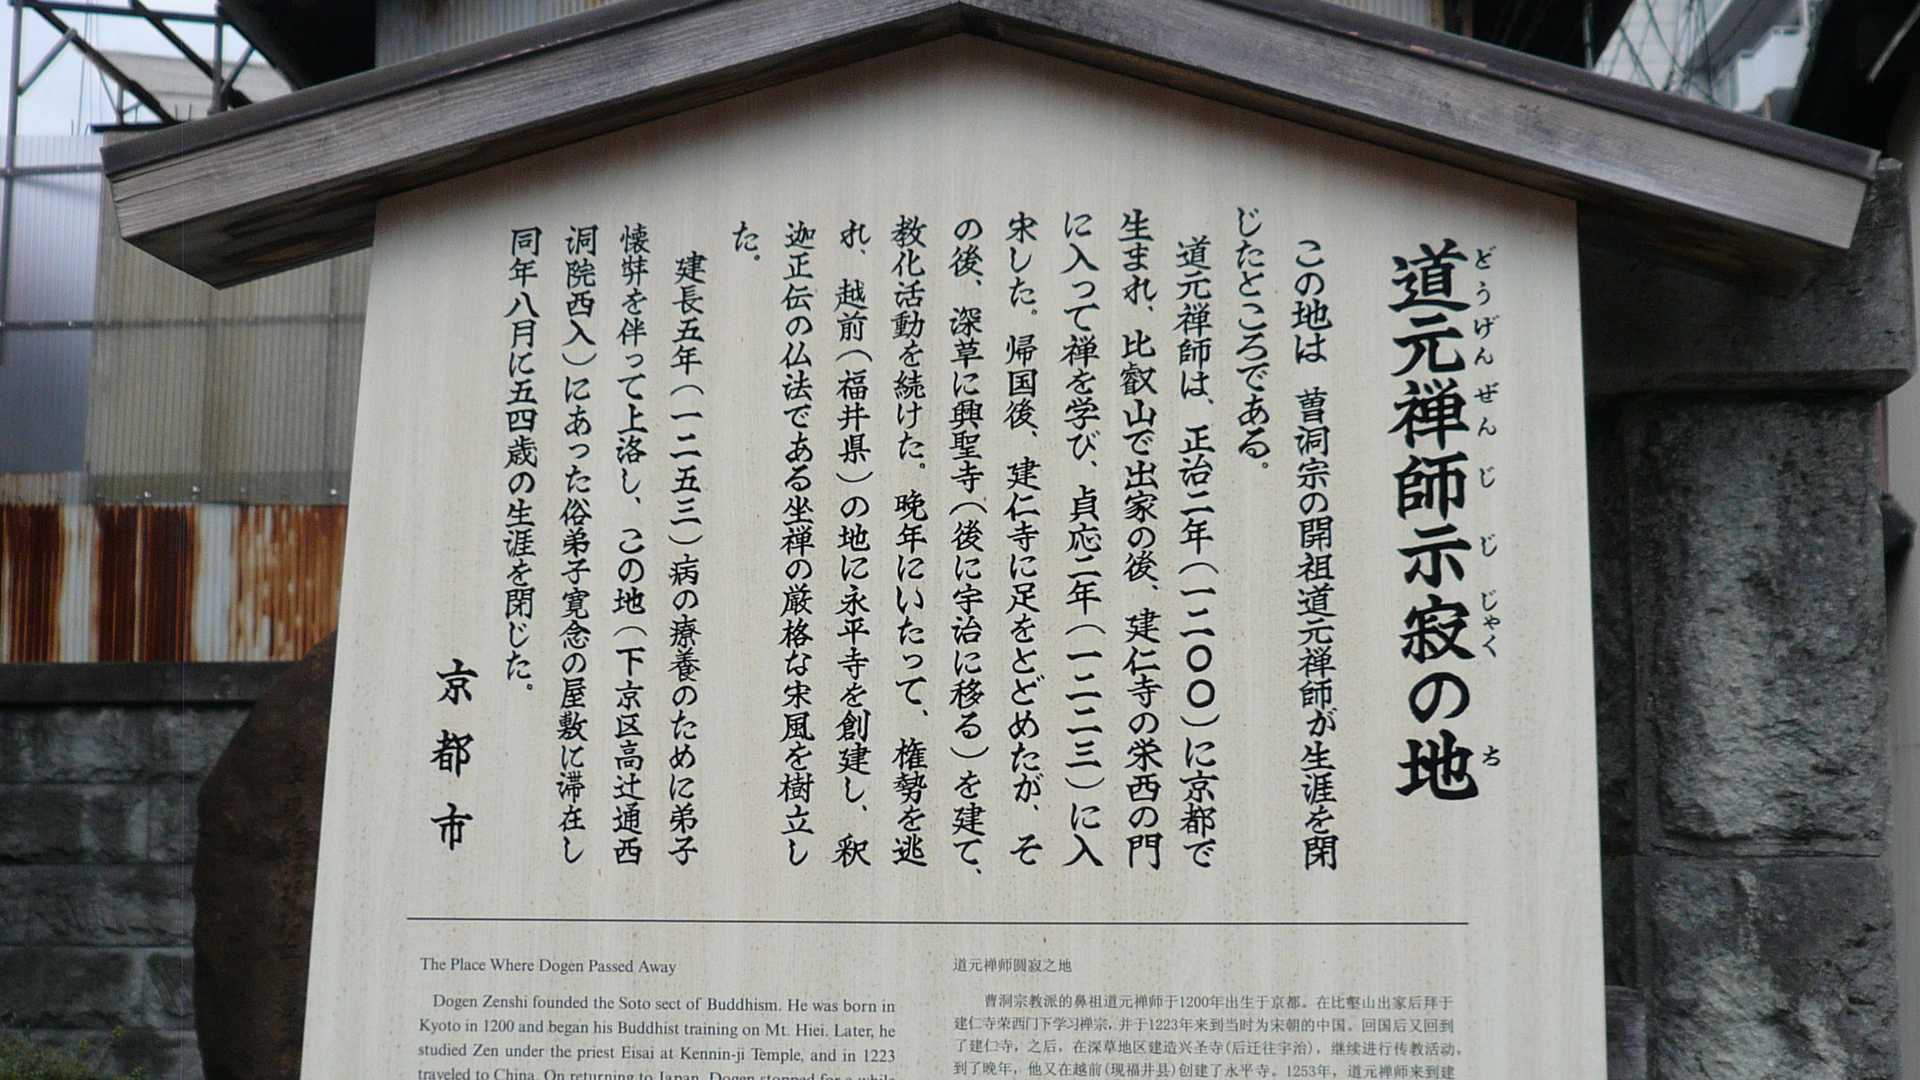 道元禅師示寂の地
どうげんぜんじじじゃく ち
この地は 曹洞宗の開祖道元禅師が生涯を閉
じたところである。
道元禅師は、正治二年(一二〇〇)に京都で
生まれ、比叡山で出家の後、建仁寺の栄西の門
に入って禅を学び、貞応二年(一二二三)に入
宋した。帰国後、建仁寺に足をとどめたが、そ
の後、深草に興聖寺(後に宇治に移る)を建て、
教化活動を続けた。晩年にいたって、権勢を逃
れ、越前(福井県)の地に永平寺を創建し、釈
迦正伝の仏法である坐禅の厳格な宋風を樹立し
た。
建長五年(一二五三)病の療養のために弟子
懐弉を伴って上洛し、この地(下京区高辻通西
洞院西入)にあった俗弟子寛念の屋敷に滞在し
同年八月に五四歳の生涯を閉じた。
京都市
The Place Where Dogen Passed Away
Dogen Zenshi founded the Soto sect of Buddhism. He was born in
Kyoto in 1200 and began his Buddhist training on Mt. Hiei. Later, he
studied Zen under the priest Eisai at Kennin-ji Temple, and in 1223
traveled to China. On returning to Japan, Dogen stopped for a while
道元禅师圆寂之地
曹洞宗教派的鼻祖道元禅师于1200年出生于京都。在比壑山出家后拜于
建仁寺荣西门下学习禅宗,并于1223年来到当时为宋朝的中国。回国后又回到
了建仁寺,之后,在深草地区建造兴圣寺(后迁往宇治),继续进行传教活动,
到了晚年,他又在越前(现福井县)创建了永平寺。1253年,道元禅师来到建